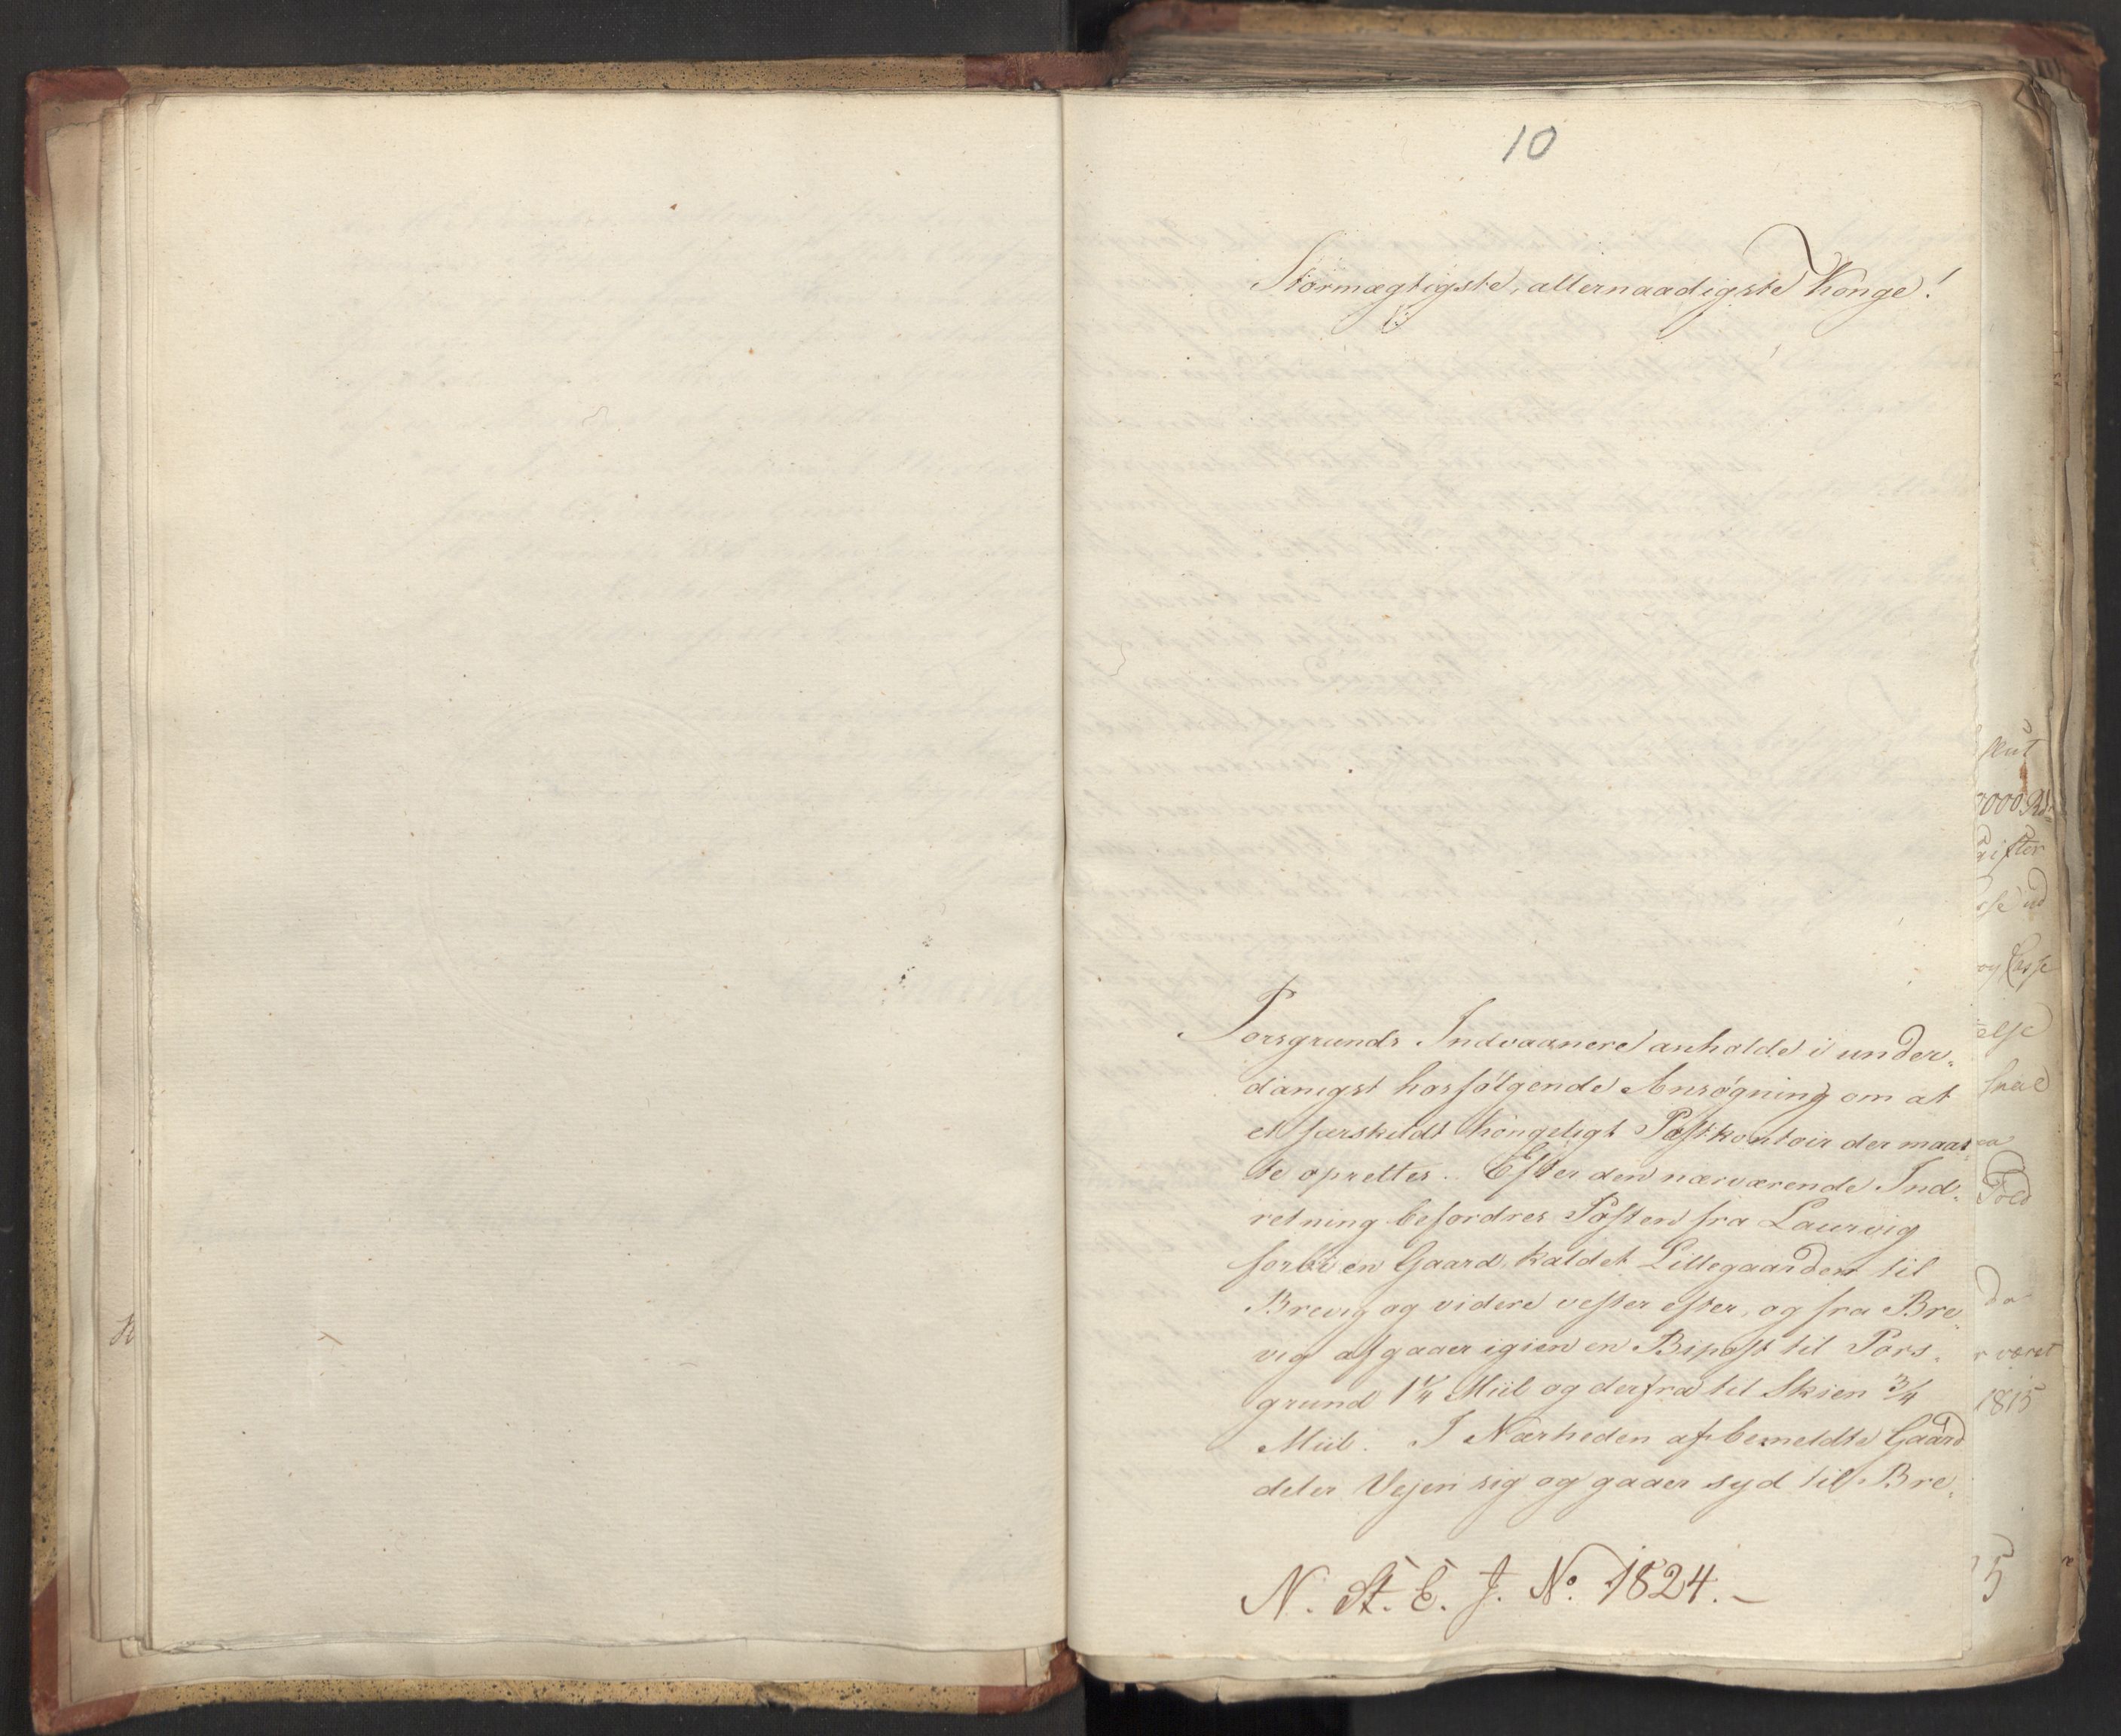 10
Stormægtigste, allernaadigste Konge!
Porsgrunds Indvaanere anholde i under-
danigst hosfølgende Ansøgning om at
et særskildt kongeligt Postkontoir der maat-
te oprettes. Efter den nærværende Ind-
retning befordres Posten fra Laurvig
forbi en Gaard, kaldet Lillegaarden til
Brevig og videre vester efter, og fra Bre-
vig afgaaer igien en Bipost til Pors-
grund 1 1/4 Miil og derfra til Skien 3/4
Miil. I Nærheden af bemeldte Gaard
deler Vejen sig og gaaer syd til Bre-
N. St. E. J. No. 1824.-
1815